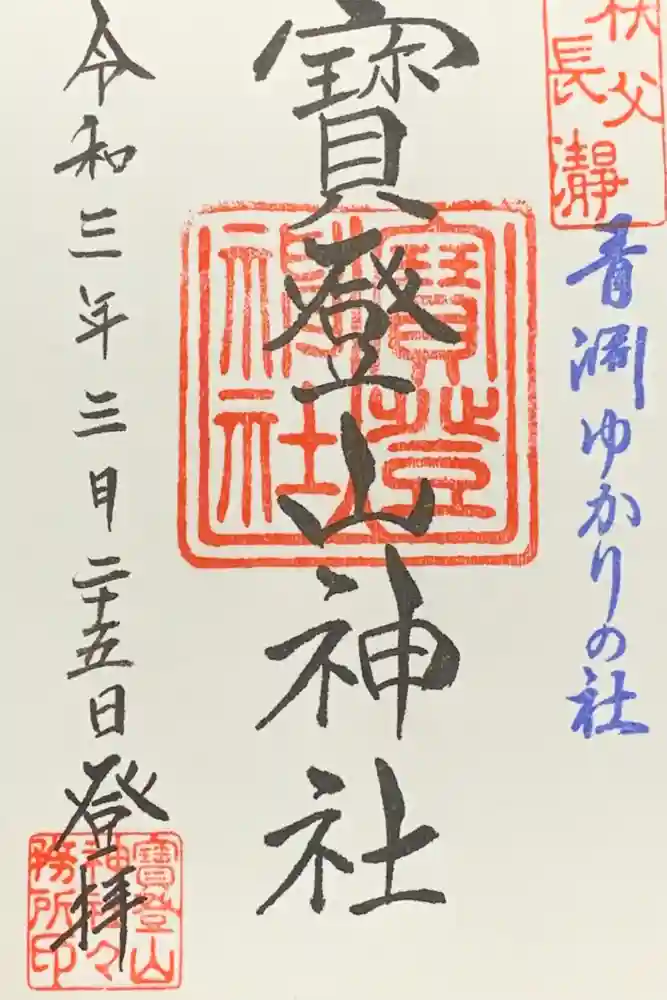 秩父
長瀞
青淵ゆかりの社
寳登山神社
寳登
山神社
令和三年三月二十五日登拝
寳登山
神社々
務所印